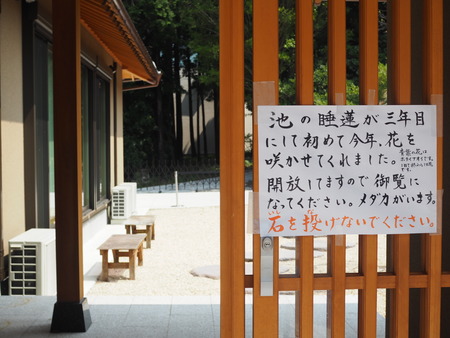 池の睡蓮が三年目
にして初めて今年、花を
咲かせてくれました。
開放してますので御覧に
なってください。メダカがいます。
石を投げないでください。